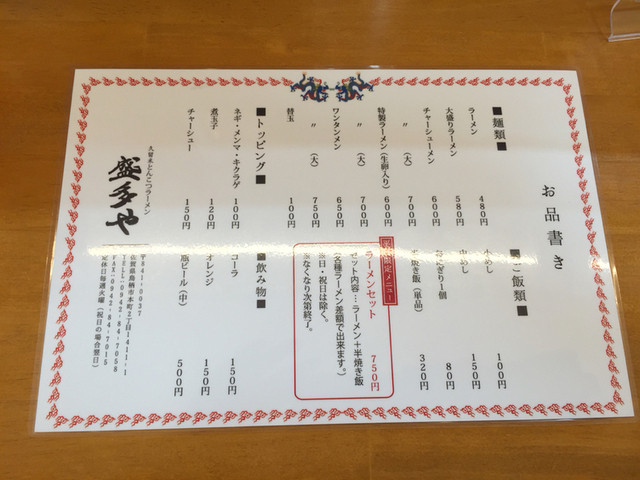 お品書き
■麺類■
ラーメン 480円
大盛りラーメン 580円
チャーシューメン 600円
〃 (大) 700円
特製ラーメン(生卵入り) 600円
〃 (大) 700円
ワンタンメン 650円
〃 (大) 750円
替玉 100円
■トッピング■
ネギ・メンマ・キクラゲ 100円
煮玉子 120円
チャーシュー 150円
ご飯類■
小めし 100円
中めし 150円
おにぎり1個 80円
焼き飯(単品) 320円
限定メニュー
ラーメンセット 750円
セット内容…ラーメン+半焼き飯
(各種ラーメン差額で出来ます。)
日・祝日は除く。
なくなり次第終了。
■飲み物■
コーラ 150円
オレンジ 150円
瓶ビール(中) 500円
久留米とんこつラーメン
盛多や
〒841-0037
佐賀県鳥栖市本町2丁目1411-1
TELL-0942-84-7058
FAX-0942-84-7015
定休日毎週火曜(祝日の場合翌日)